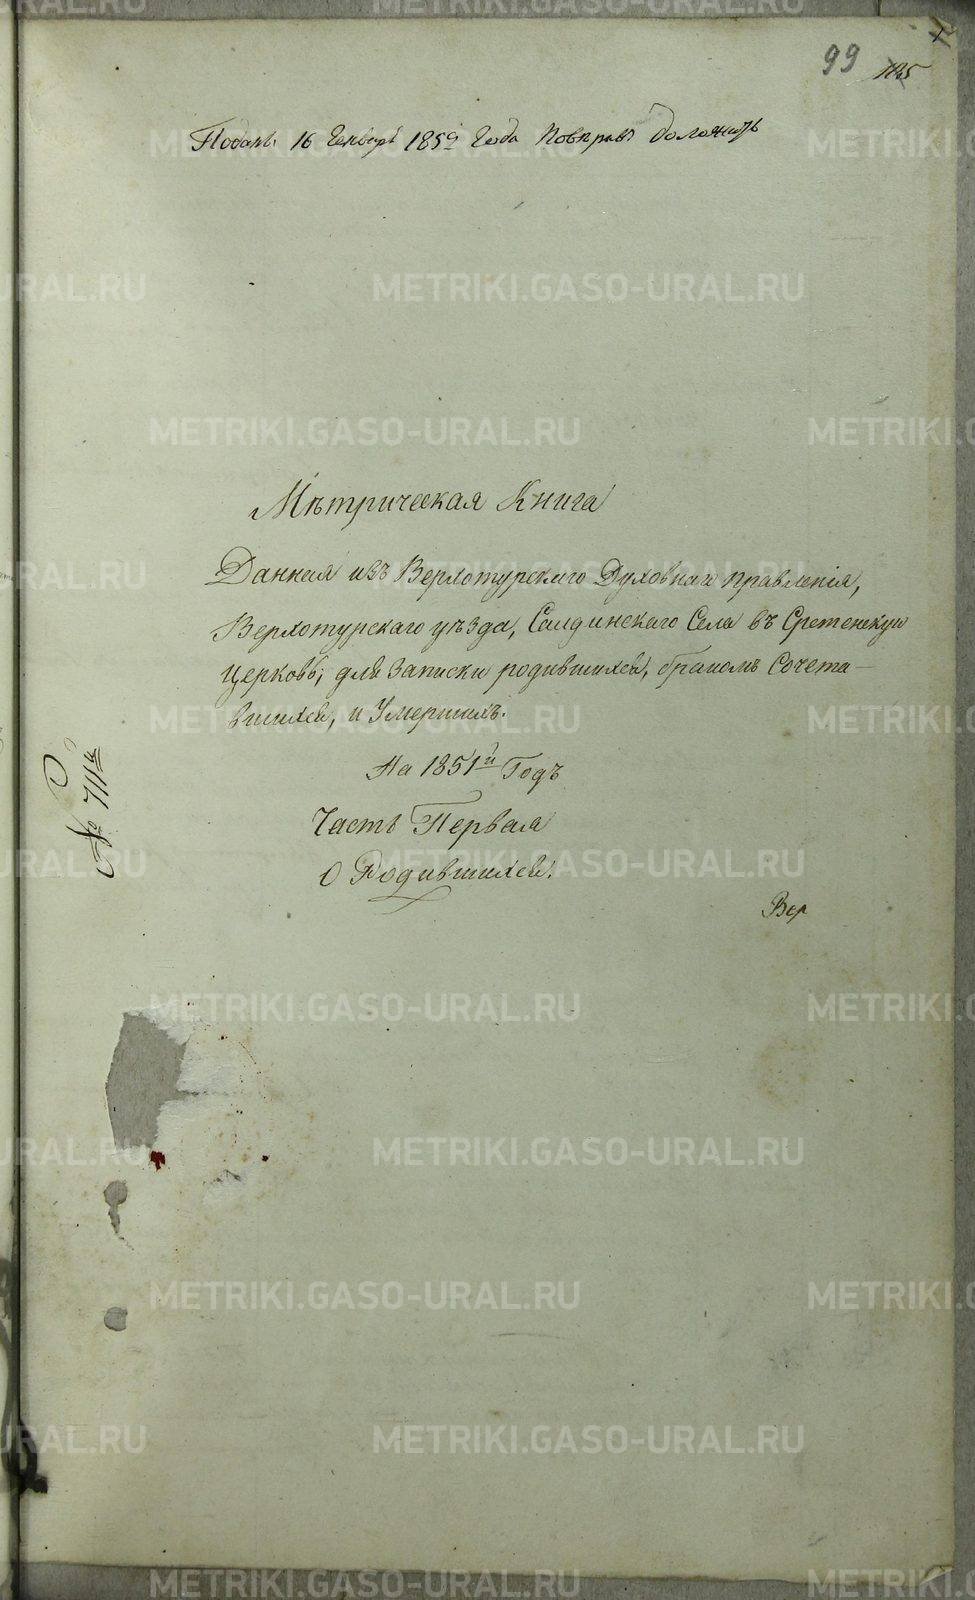 99 185
Поданъ 16 Генваря 1852 Года Повѣривъ доложить
Мѣтрическая Книга
Данная изъ Верхотурскаго Духовнаго Правленія,
Верхотурскаго уѣзда, Салдинскаго Села въ Сретенскую
Церковь, для записки родившихся, бракомъ Сочета-
вшихся, и Умершихъ.
На 1851й Годъ
Часть Первая
О Родившихся.
Вер
№ 711й
METRIKI.GASO-URAL.RU